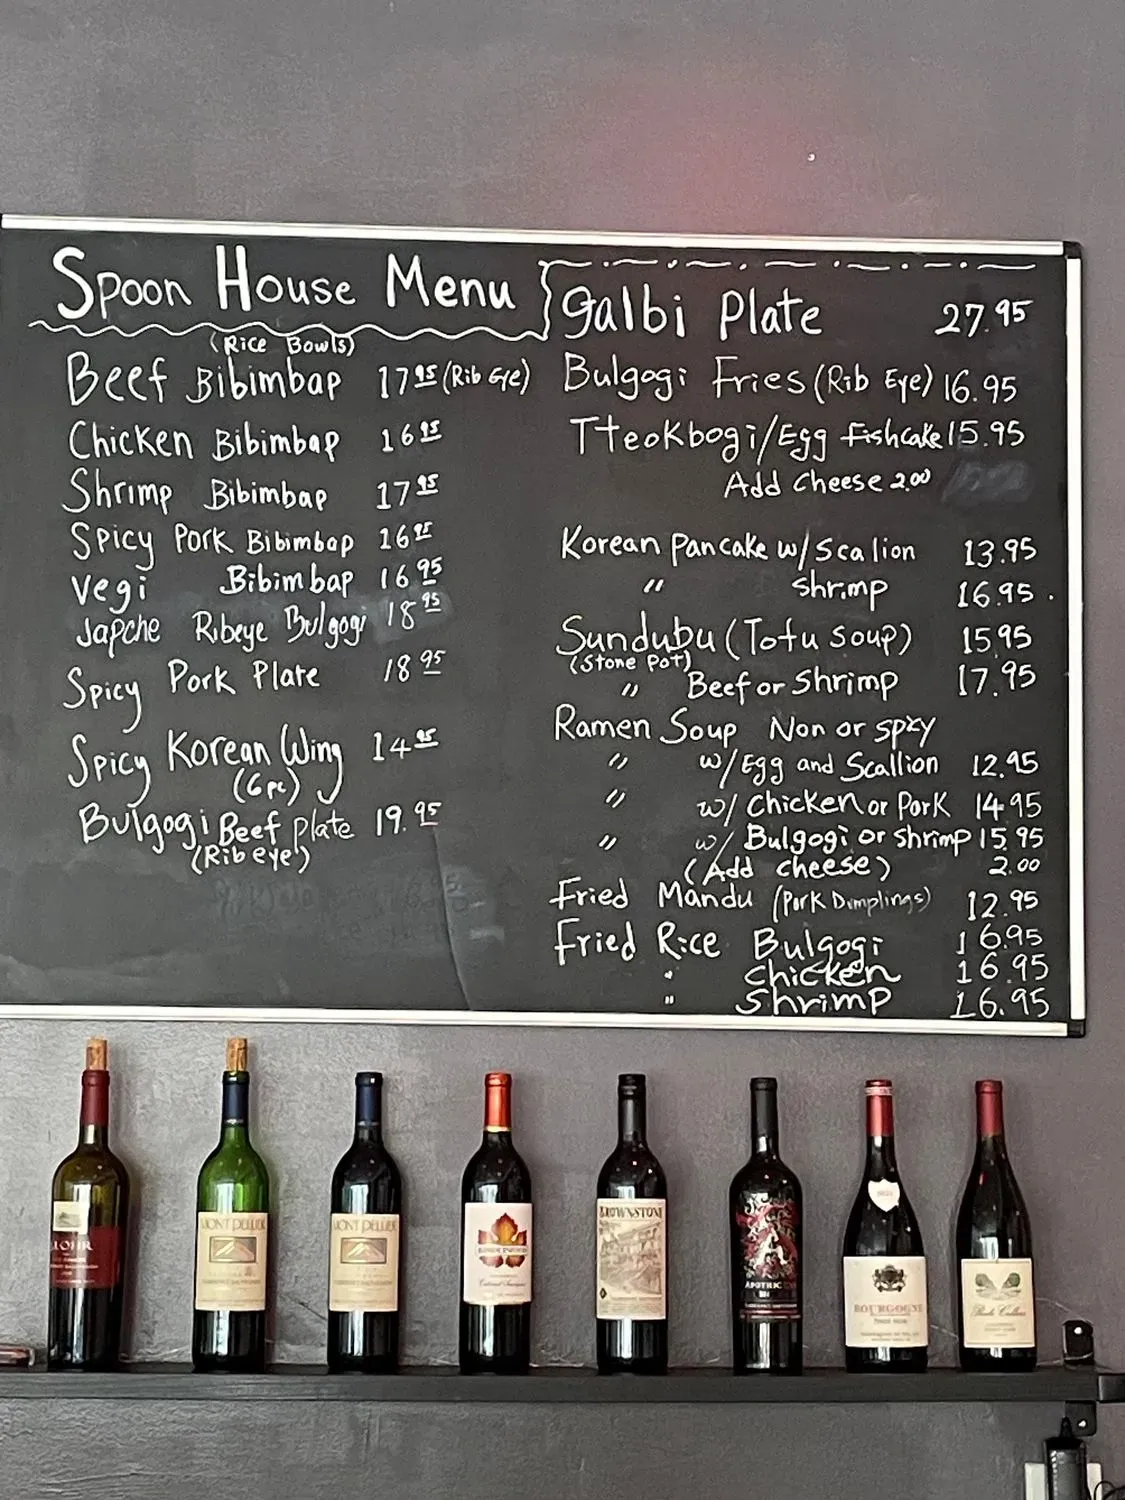 Spoon House Menu
(Rice Bowls)
Beef Bibimbap 17 95 (Rib Eye)
Chicken Bibimbap 16 95
Shrimp Bibimbap 17 95
Spicy Pork Bibimbap 16 95
Vegi Bibimbap 16 95
Japche Ribeye Bulgogi 18 95
Spicy Pork Plate 18 95
Spicy Korean Wing 14 95
(6pc)
Bulgogi Beef plate 19. 95
(Rib eye)
galbi Plate 27.95
Bulgogi Fries (Rib Eye) 16.95
Tteokbogi/Egg Fishcake 15.95
Add cheese 2.00
Korean pancake w/ Scalion 13.95
" shrimp 16.95
Sundubu (Tofu soup) 15.95
(Stone Pot)
" Beef or shrimp 17.95
Ramen Soup Non or spicy
" w/Egg and Scallion 12.95
" w/ Chicken or Pork 14.95
" w/ Bulgogi or shrimp 15.95
(Add cheese) 2.00
Fried Mandu (Pork Dumplings) 12.95
Fried Rice Bulgogi 16.95
" chicken 16.95
" shrimp 16.95
LOHR
MONTPELLIER
MONTPELLIER
Cabernet Sauvignon
BROWNSTONE
APOTHIC
BOURGOGNE
PINOT NOIR